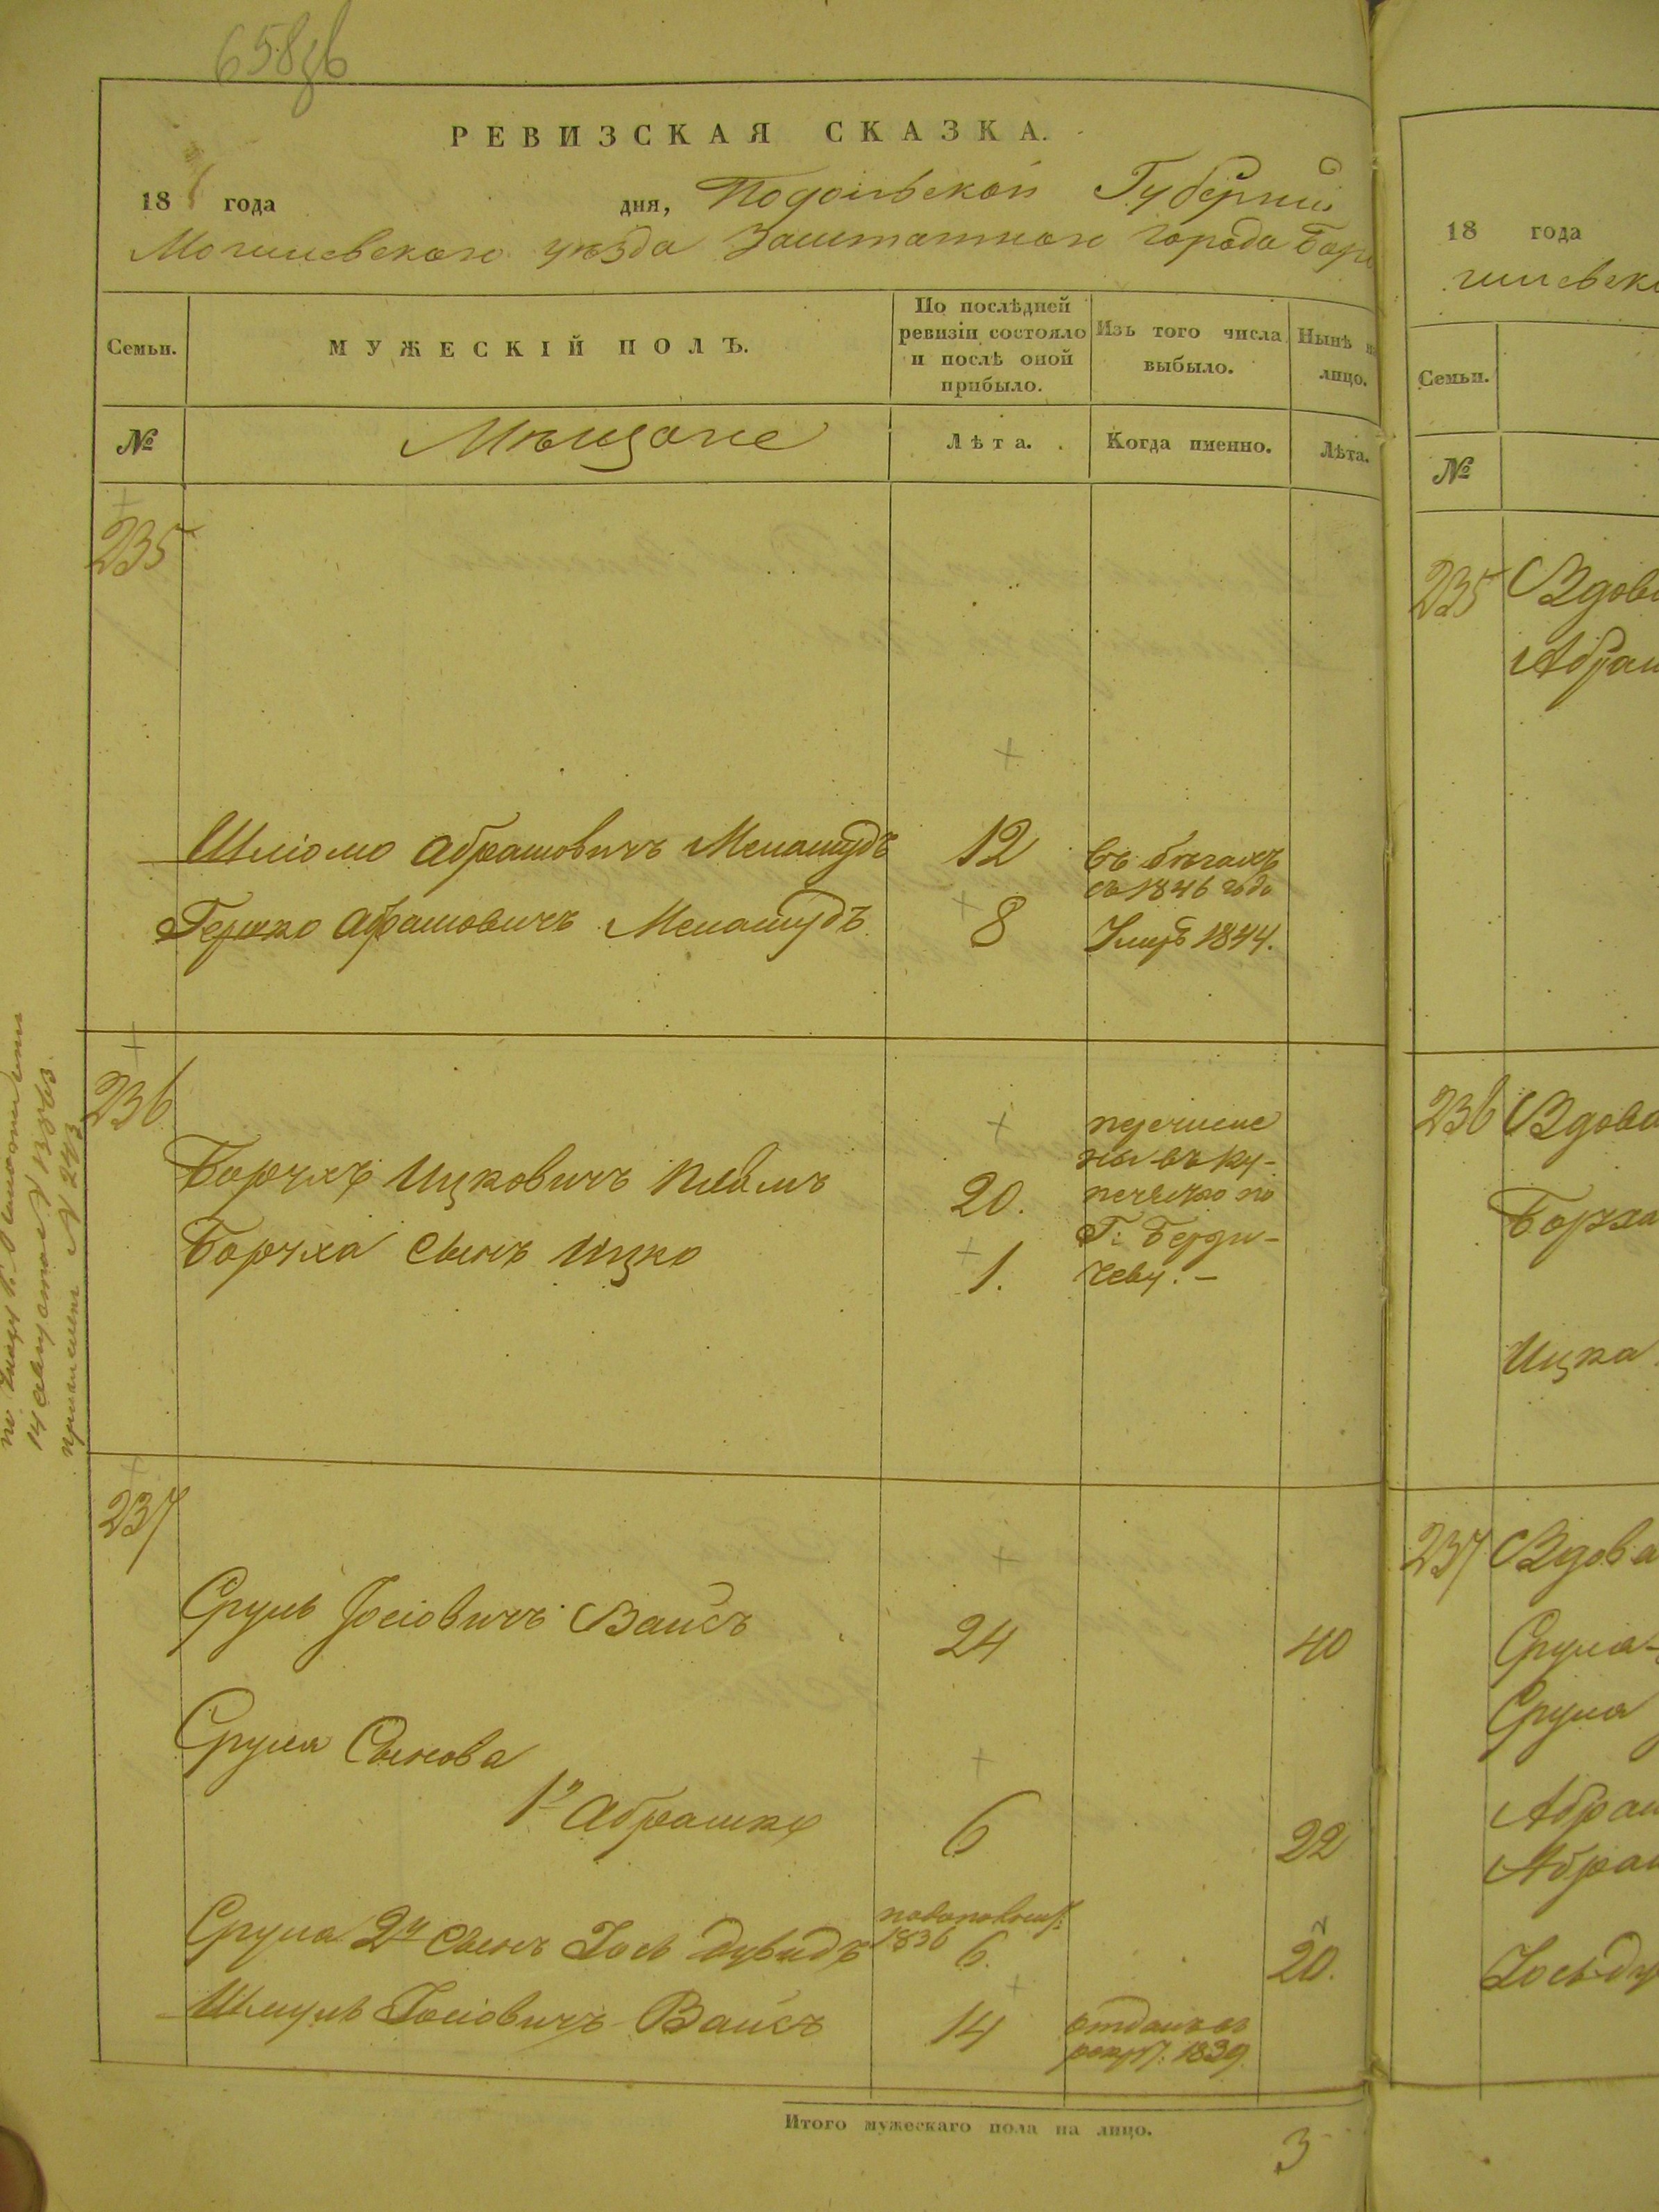 658
РЕВИЗСКАЯ СКАЗКА.
18 года дня, Подольской Губернии
Могилевского уѣзда Заштатного города Бар
Семьи.
МУЖЕСКІЙ ПОЛЪ.
По послѣдней ревизіи состояло и послѣ оной прибыло.
Изъ того числа выбыло.
Нынѣ на лицо.
№
Мѣщане
Лѣта.
Когда именно.
Лѣта.
235
Шліомо Абрамовичъ 12 въ бѣгахъ
съ 1846 года
Гершко Абрамовичъ 8 Умеръ 1844.
236
Борухъ Ицковичъ 20.
Боруха сынъ Ицко 1.
перечисле
ны въ ку-
печество по
Г. Берди-
чеву. -
14 августа
N 243
237
Сруль Іосіовичъ Вайсъ 24 40
Сруля Сынова
1й Абрашко 6 22
Сруля 2й сынъ Іось Дувидъ 1836 6. 20.
Шмуль Іосіовичъ Вайсъ 14 отданъ въ
рекрут: 1839
Итого мужескаго пола на лицо.
3
18 года
Семьи.
№
235 Вдова
Абрам
236 Вдова
Боруха
Ицка
237 Вдова
Сруля
Сруля
Абраш
Абраш
Іось Ду